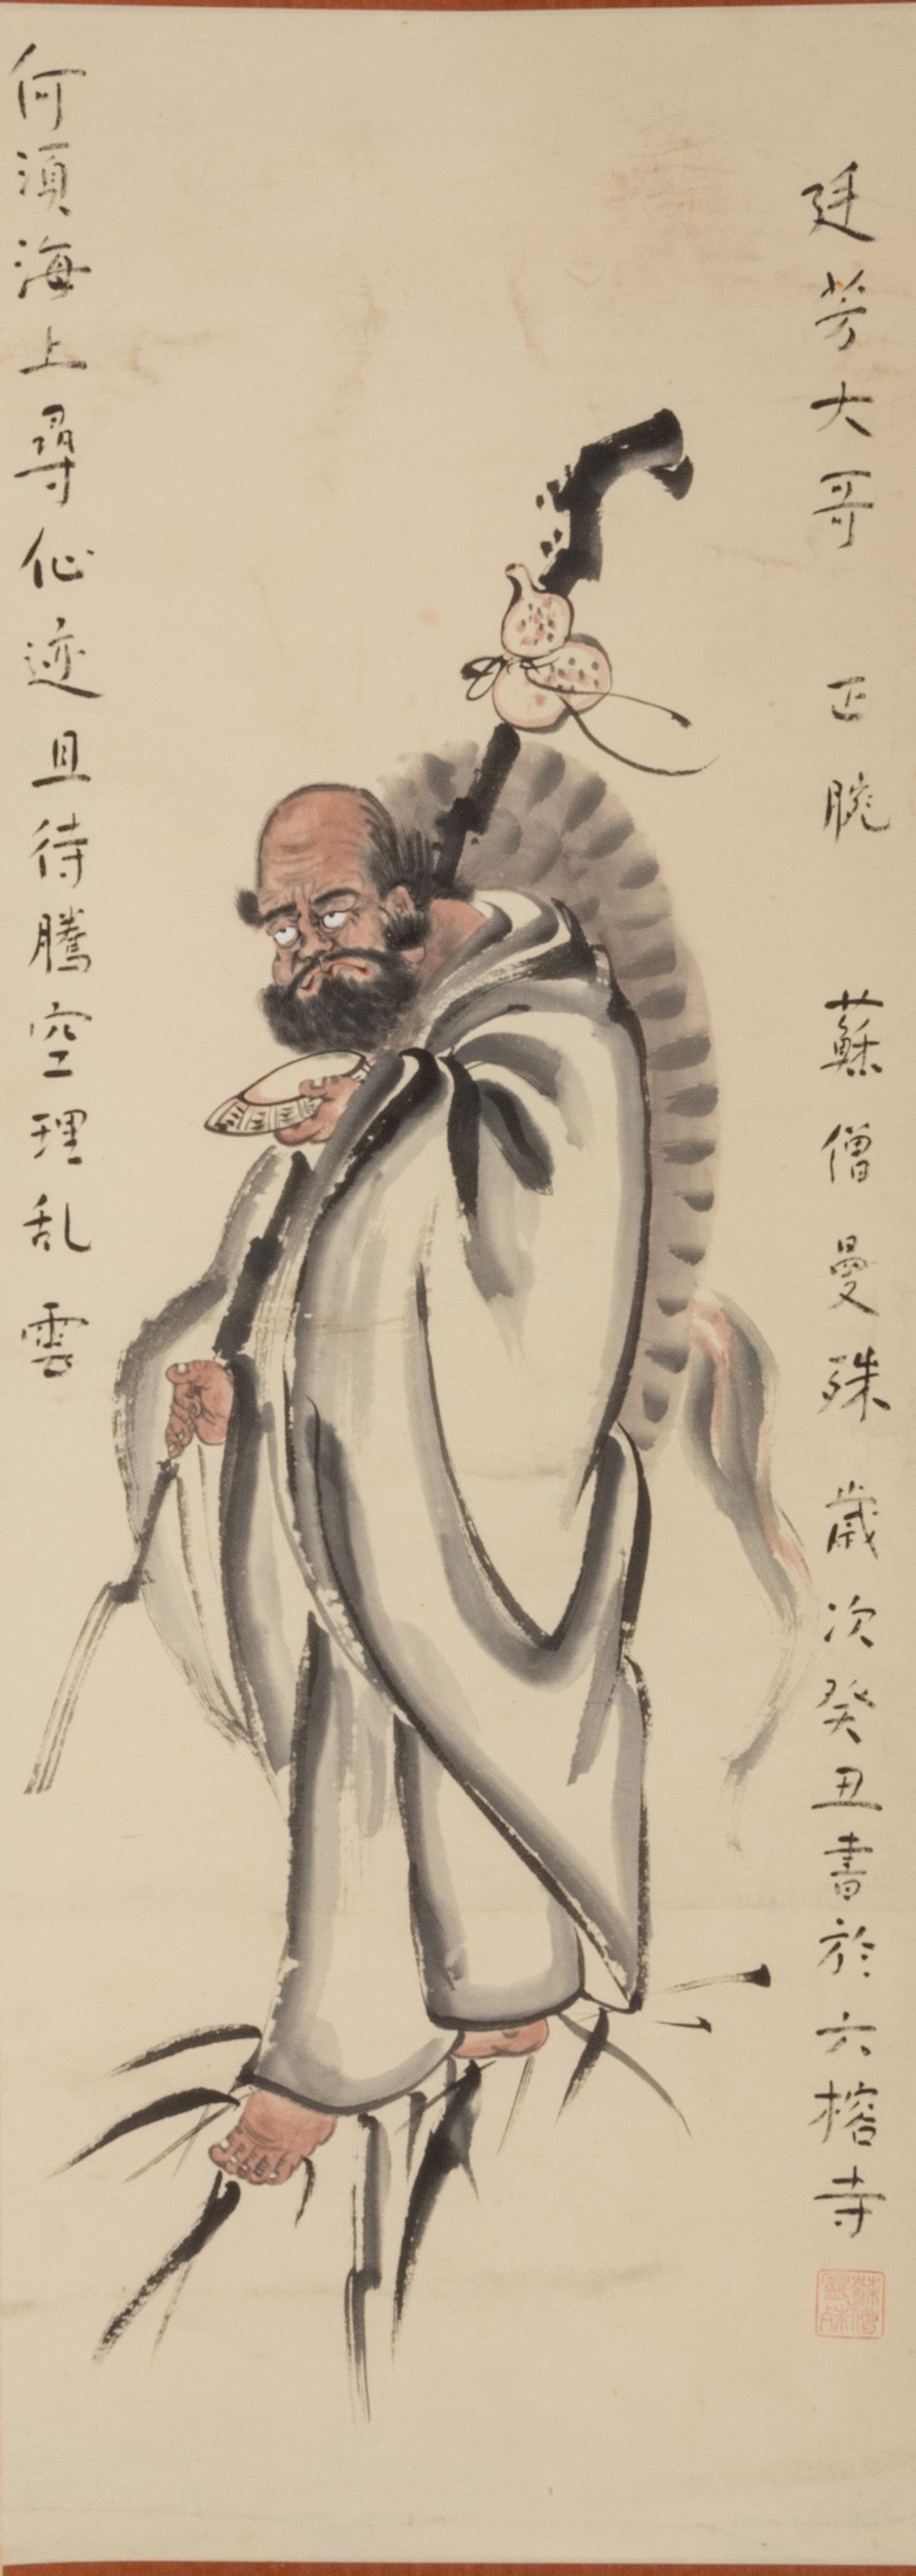 廷芳大哥 正腕 蘇僧曼殊 歲次癸丑書於六榕寺
何須海上尋仙迹且待騰空理乱雲